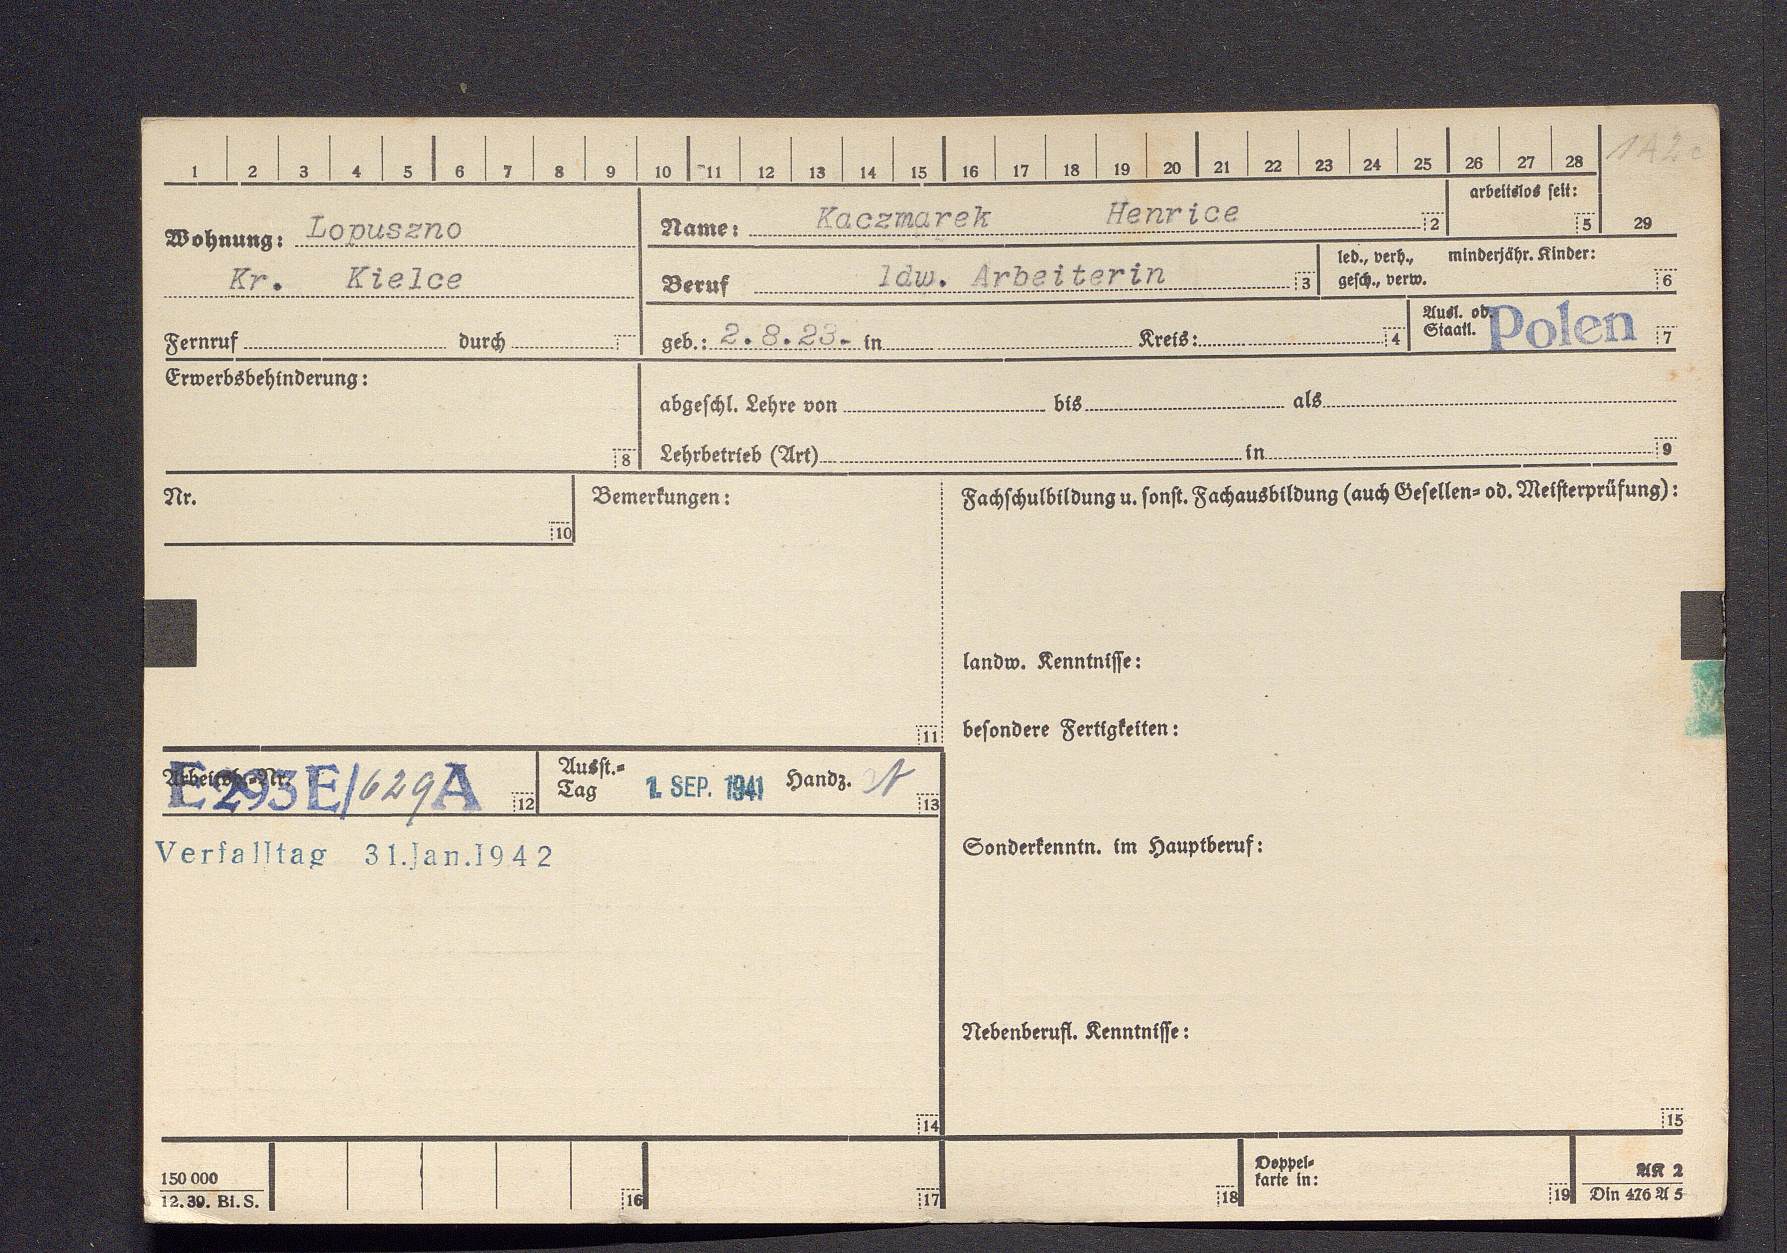 1 2 3 4 5 6 7 8 9 10 11 12 13 14 15 16 17 18 19 20 21 22 23 24 25 26 27 28
142c
Wohnung: Lopuszno
Kr. Kielce
Name: Kaczmarek Henrice 2
arbeitslos seit: 5
29
Beruf ldw. Arbeiterin 3
led., verh., minderjähr. Kinder:
gesch., verw. 6
Fernruf durch
geb.: 2.8.23. in Kreis: 4
Ausl. od.
Staatl. Polen 7
Erwerbsbehinderung:
8
abgeschl. Lehre von bis als
Lehrbetrieb (Art) in 9
Nr.
10
Bemerkungen:
11
Fachschulbildung u. sonst. Fachausbildung (auch Gesellen- od. Meisterprüfung):
landw. Kenntnisse:
besondere Fertigkeiten:
Arbeitsb.-Nr.
E 293 E/629 A 12
Ausst.-
Tag 1. SEP. 1941 Handz. 13
Verfalltag 31.Jan.1942
14
Sonderkenntn. im Hauptberuf:
Nebenberufl. Kenntnisse:
15
150 000
12. 39. Bi. S.
16
17
18
Doppel-
karte in:
19
AK 2
Din 476 A 5